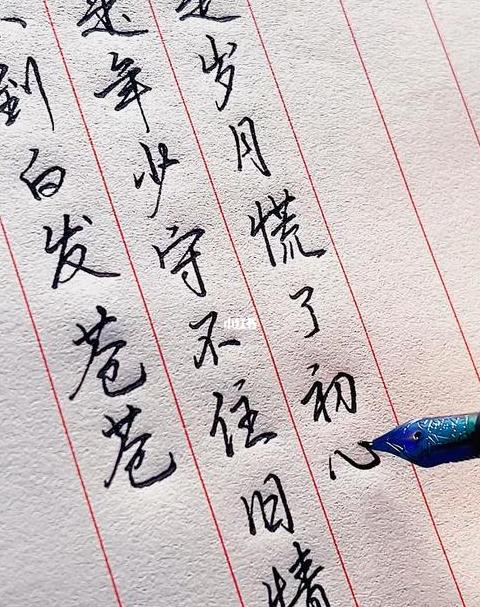 是岁月慌了初心
是年少守不住旧情
到白发苍苍
小红书